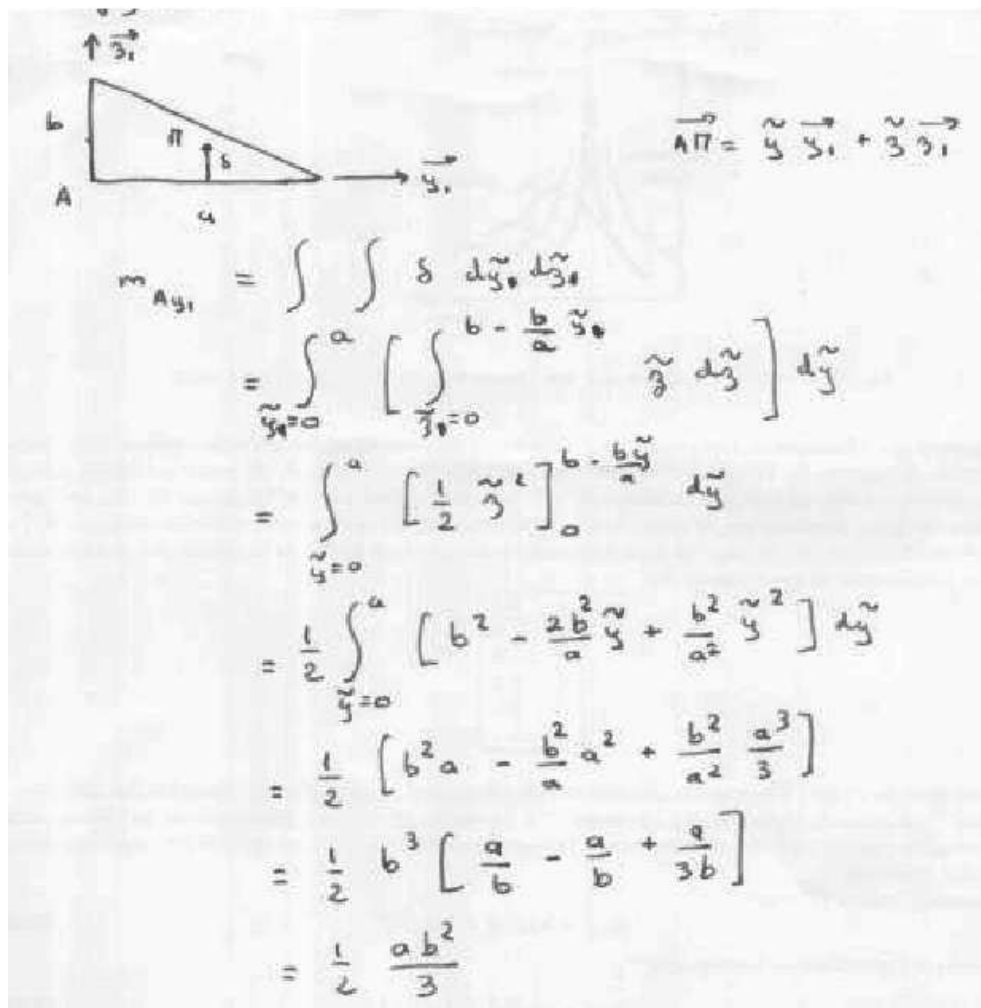 z⃗₁
b
Π
δ
A
a
y⃗₁
AΠ⃗ = ỹ y⃗₁ + z̃ z⃗₁
m_{Ay₁} = ∫ ∫ δ dỹ dz̃
= ∫_{ỹ=0}^{a} [ ∫_{z̃=0}^{b - (b/a) ỹ} z̃ dz̃ ] dỹ
= ∫_{ỹ=0}^{a} [ 1/2 z̃² ]_{0}^{b - (b/a) ỹ} dỹ
= 1/2 ∫_{ỹ=0}^{a} [ b² - (2b²/a) ỹ + (b²/a²) ỹ² ] dỹ
= 1/2 [ b² a - (b²/a) a² + (b²/a²) (a³/3) ]
= 1/2 b³ [ a/b - a/b + a/(3b) ]
= 1/2 (a b²)/3